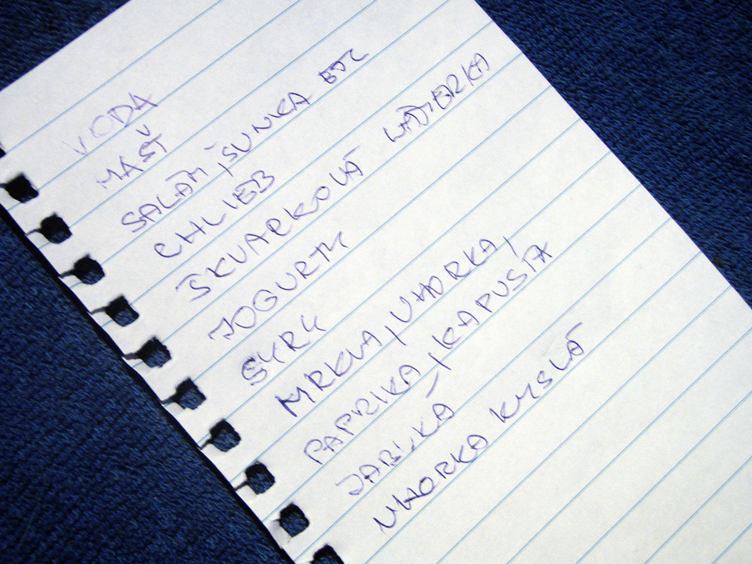 VODA
MASŤ
SALÁM, ŠUNKA
CHLIEB
ŠKVARKOVÁ NÁTIERKA
JOGURTY
SYRY
MRKVA, UHORKA,
PAPRIKA, KAPUSTA
JABLKÁ
UHORKA KYSLÁ